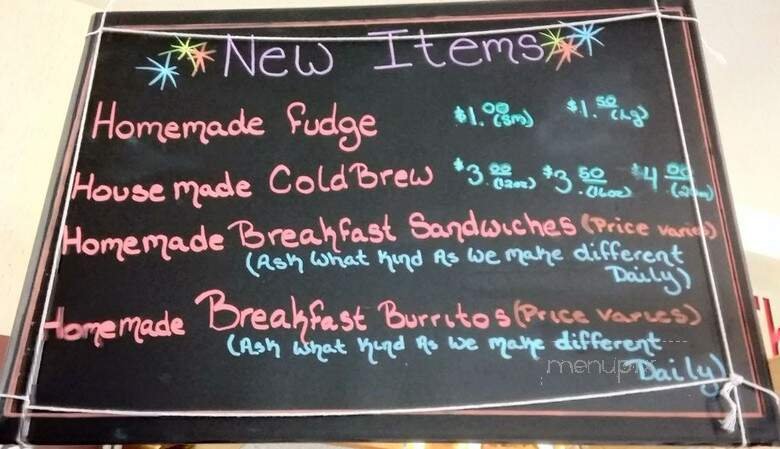 New Items
Homemade fudge $1.00 (sm) $1.50 (Lg)
House made Cold Brew $3.00 (12oz) $3.50 (16oz) $4.00
Homemade Breakfast Sandwiches (Price varies)
(Ask What Kind As We make different
Daily)
Homemade Breakfast Burritos (Price varies)
(Ask What Kind As We make different
Daily)
menupix